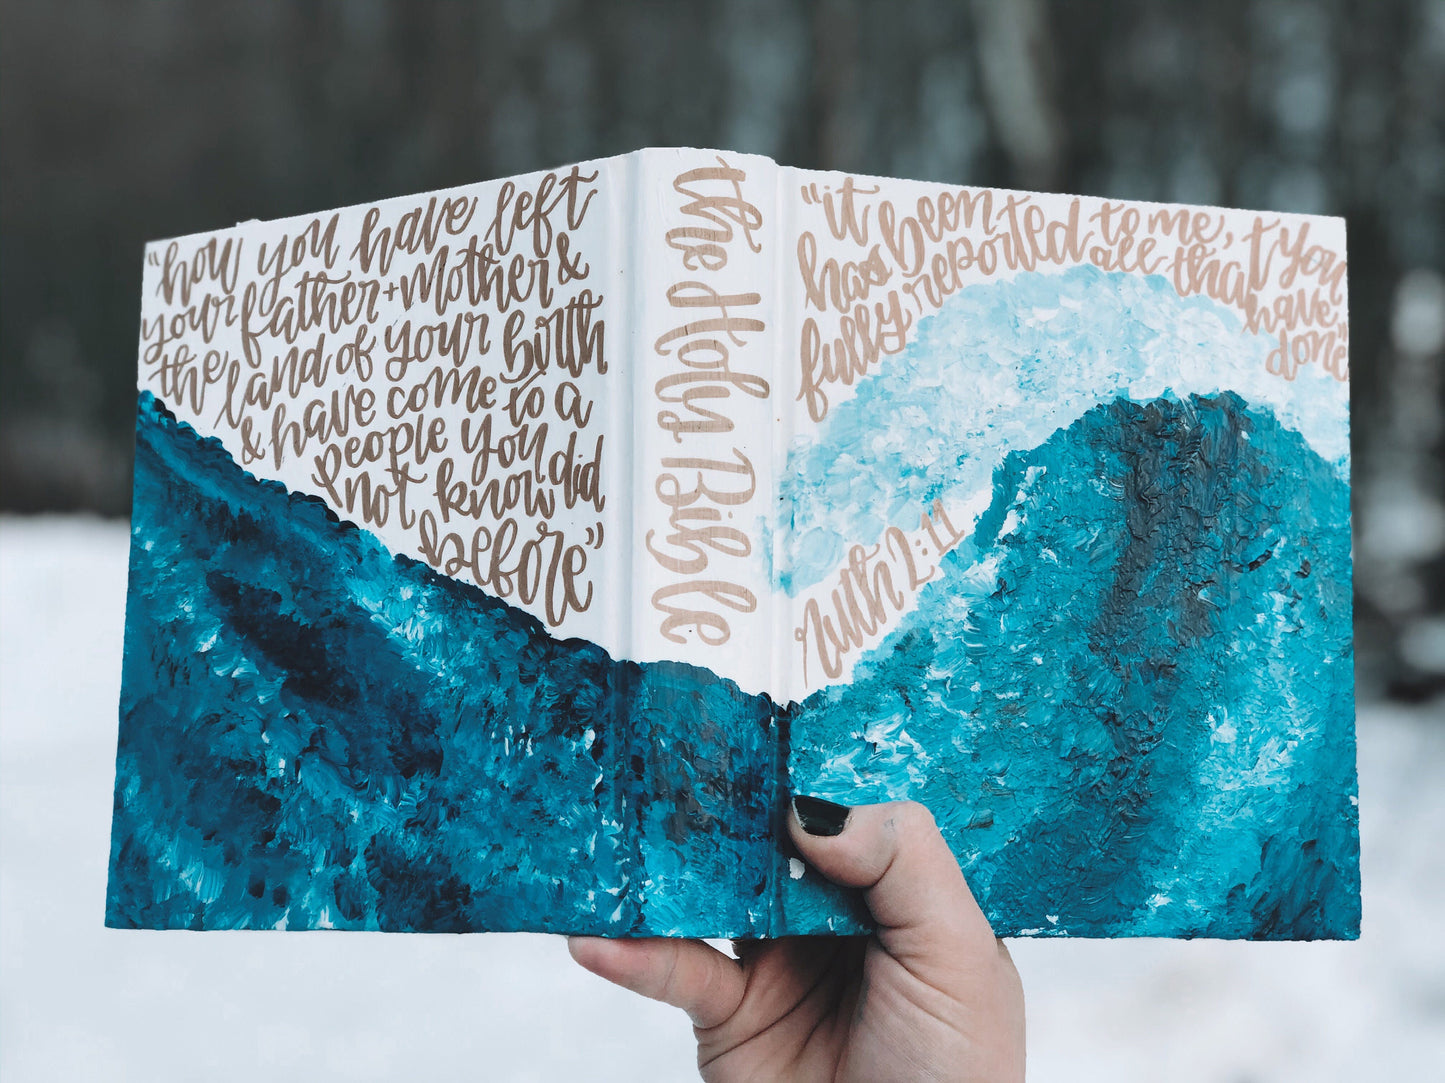 "how you have left
your father + mother &
the land of your birth
& have come to a
people you
not know did
before"
the Holy Bible
"it
has been to me,
fully reported all that you
have
done"
Ruth 2:11